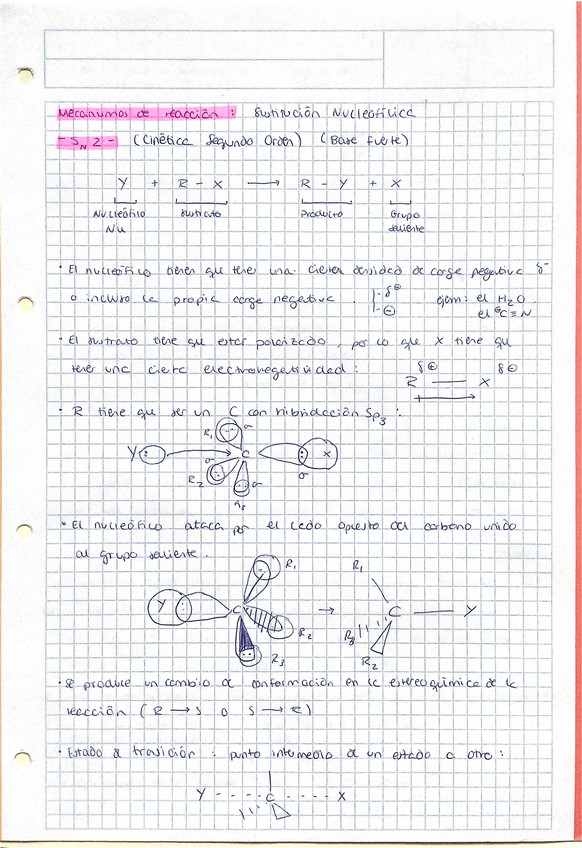 Mecanismos de reacción : Sustitución Nucleofílica
- SN2 - (Cinética Segundo Orden) (Base fuerte)
Y + R - X ⟶ R - Y + X
Nucleófilo Sustrato Producto Grupo
Nu saliente
· El nucleófilo tienen que tener una cierta densidad de carga negativa δ-
o incluso la propia carga negativa . - δ⊖ ejem: el H2O
- ⊖ el ⊖C≡N
· El sustrato tiene que estar polarizado , por lo que X tiene que
tener una cierta electronegatividad : δ⊕ δ⊖
R — X
· R tiene que ser un C con hibridación Sp3 :
R1 σ
Y C X
R2 σ σ σ
R3
· El nucleófilo ataca por el lado opuesto del carbono unido
al grupo saliente .
R1 R1
Y C R2 → C — Y
R3
R3 R2
· Se produce un cambio de conformación en la estereoquímica de la
reacción ( R ⟶ S o S ⟶ R )
· Estado de transición : punto intermedio de un estado a otro :
Y - - - - C - - - - X